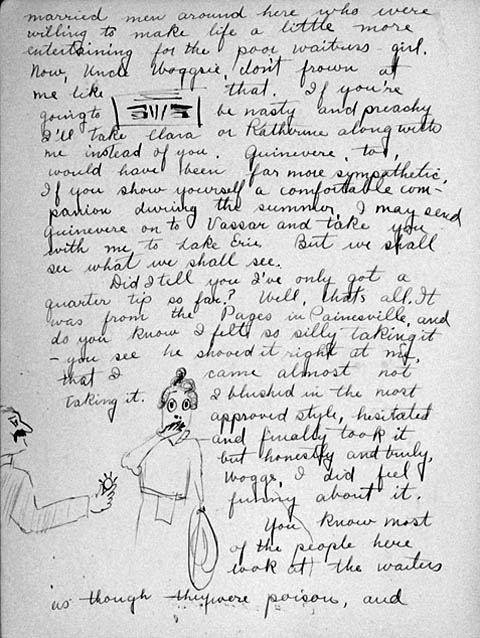 married men around here who were
willing to make life a little more
entertaining for the poor waitress-girl.
Now, Uncle Woggsie, don't frown at
me like that. If you're
going to be nasty and preachy
I'll take Clara or Katherine along with
me instead of you. Guinevere, to,
would have been far more sympathetic.
If you show yourself a comfortable com-
panion during the summer, I may send
Guinevere on to Vassar and take you
with me to Lake Erie. But we shall
see what we shall see.
Did I tell you I've only got a
quarter tip so far? Well, that's all. It
was from the Pages in Painesville, and
do you know I felt so silly taking it
- you see he shoved it right at me,
that I came almost not
taking it. I blushed in the most
approved style, hesitated
and finally took it
but honestly and truly,
Woggs, I did feel
funny about it.
You know most
of the people here
look at the waiters
as though they were poison, and